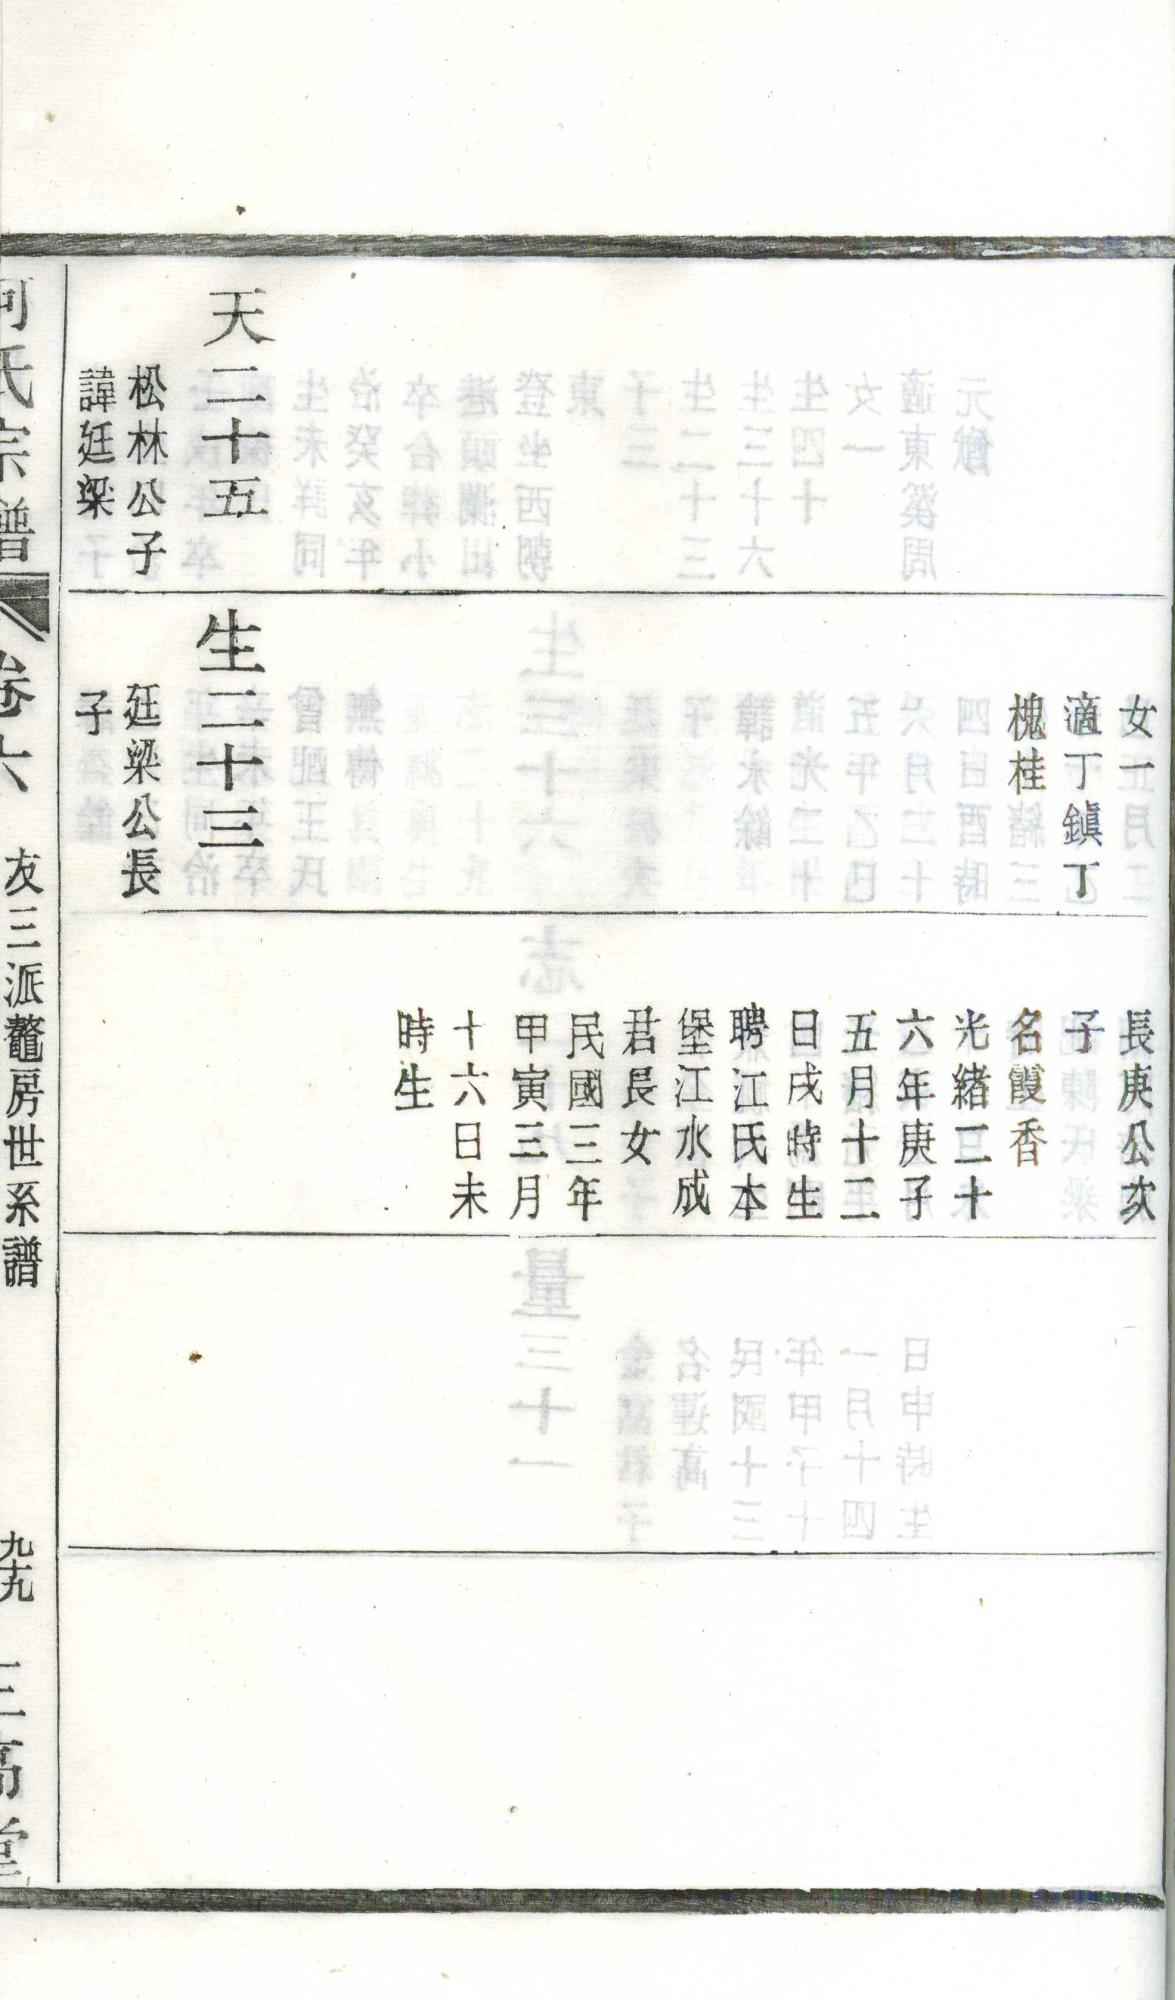 天二十五
松林公子
諱廷梁
女一
適丁鎭丁
槐桂
生二十三
廷梁公長
子
長庚公次
子
名霞香
光緒二十
六年庚子
五月十二
日戌時生
聘江氏本
堡江水成
君長女
民國三年
甲寅三月
十六日未
時生
何氏宗譜
卷六
友三派鼇房世系譜
九十九
三高堂